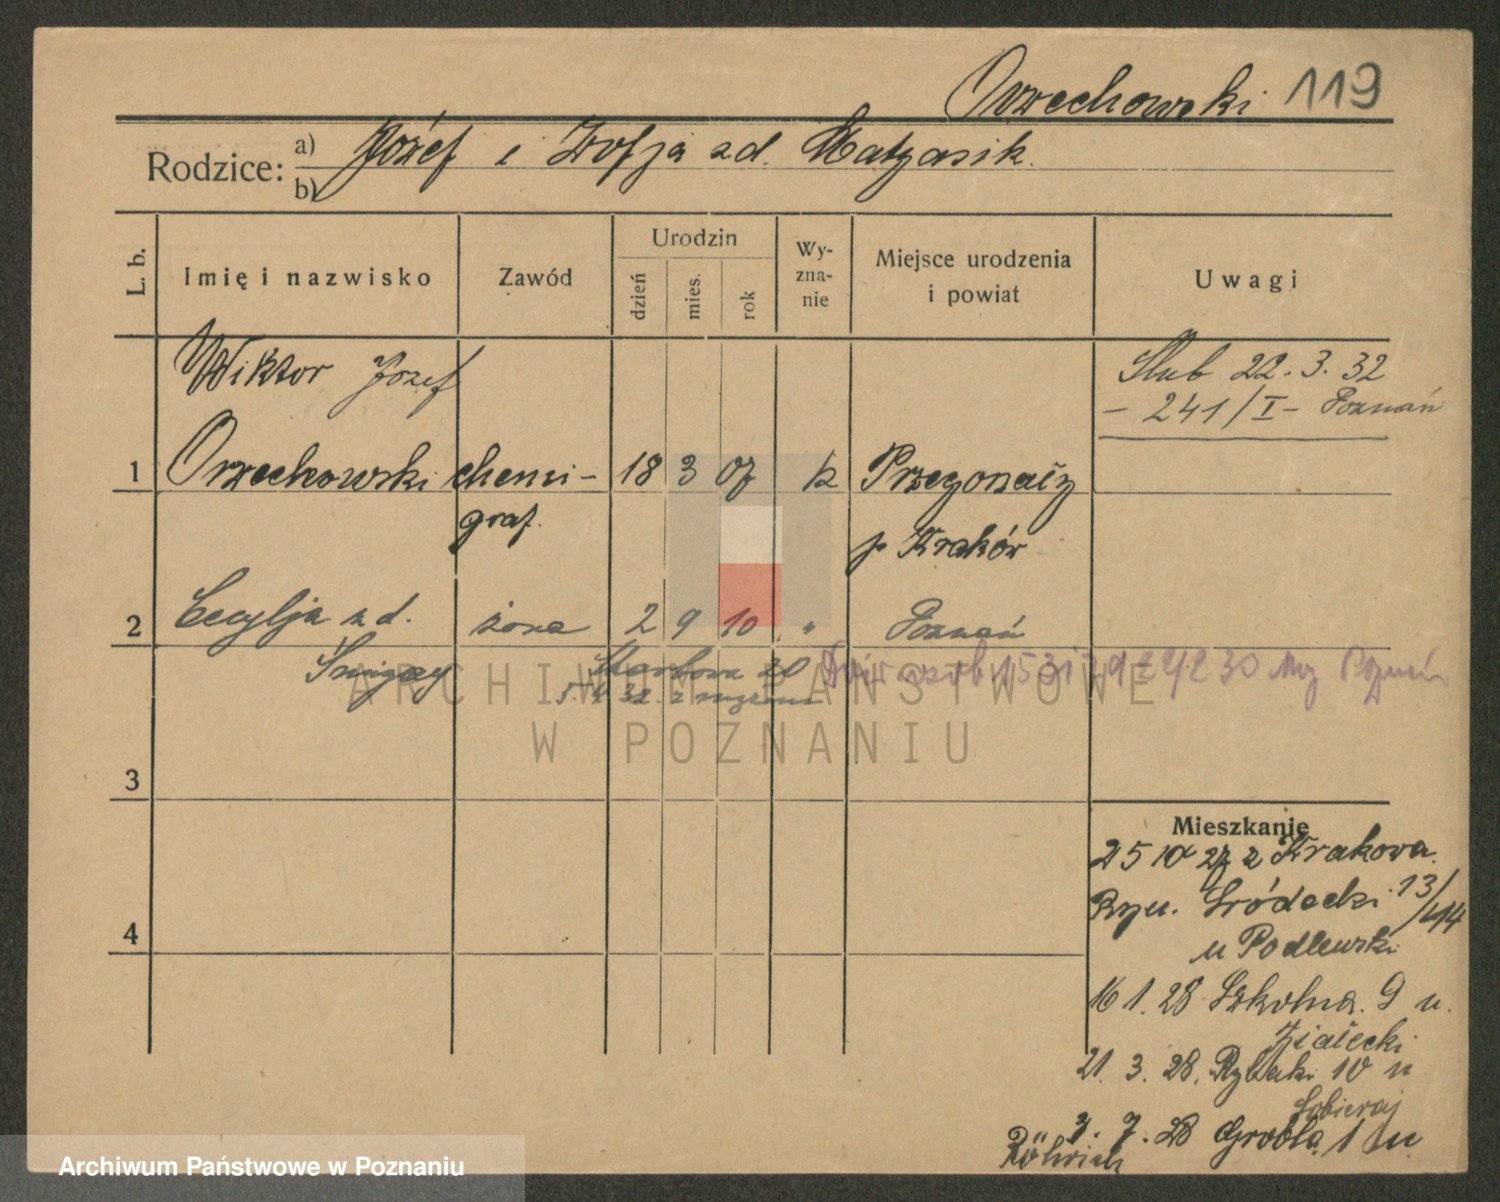 Orzechowski 119
Rodzice: a) Józef i Zofja zd. Matyasik.
b)
L. b.
Imię i nazwisko
Zawód
Urodzin
dzień
mies.
rok
Wy-
zna-
nie
Miejsce urodzenia
i powiat
Uwagi
Wiktor Józef
Ślub 22. 3. 32
- 241/I - Poznań
1 Orzechowski chemi- 18 3 07 k Przegorzały
graf.
p Kraków
2 Cecylja zd. żona 2 9 10 " Poznań
Śmigaj
Skarbowa 20
5. 4 32. z
Dow osob 153 Poznań
ARCHIWUM PAŃSTWOWE
W POZNANIU
3
Mieszkanie
25 10 27 z Krakowa.
Ryn. Śródecki 13/14
4
u Podlewski
16 1. 28 Szkolna. 9 u.
Zialecki
21. 3. 28. Rybaki 10 u
Sobieraj
3. 7. 28 Grobla. 1 u
Röhrich
Archiwum Państwowe w Poznaniu